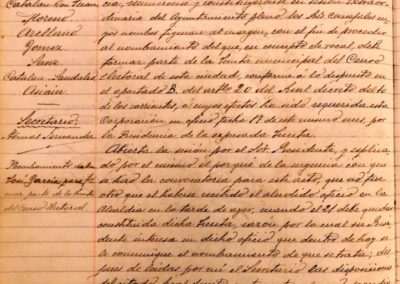 Catalán Don Juan
Moreno
Arellano
Gomez
Sanz
Catalan
Asiain
Secretario
Nombramiento de
Don García para for
mar parte de la Junta
del Censo electoral
denaria del Ayuntamiento pleno los Sres Concejales cu
yos nombres figuran al margen, con el fin de proceder
al nombramiento del que, en concepto de vocal, debe
formar parte de la Junta municipal del Censo
electoral de esta ciudad, conforme a lo dispuesto en
el apartado B. del artº 20 del Real decreto del 10
de los corrientes, a cuyos efectos ha sido requerida esta
Corporación en oficio fecha 17 de este mismo mes por
la Presidencia de la expresada Junta.
Abierta la sesión por el Sor Presidente, y explica
do por el mismo el por qué de la urgencia con que
se hizo la convocatoria para este acto, que no fué
otro que el haberse recibido el aludido oficio en la
Alcaldía en la tarde de ayer, cuando el 21 debe quedar
constituida dicha Junta, razón por la cual su Presi
dente interesa en dicho oficio que dentro de hoy se
le comunique el nombramiento de que se trata; des
pues de leidas por mí el Secretario las disposiciones